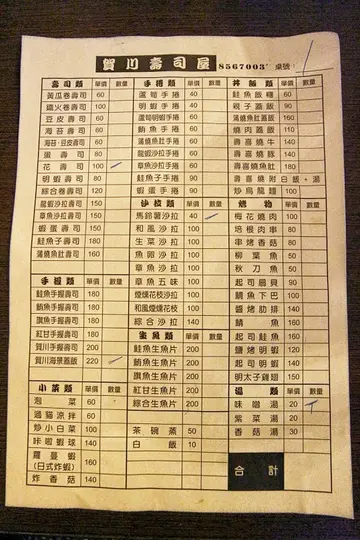 賀川壽司屋 8567003 桌號：
壽司類 單價 數量
黃瓜卷壽司 60
鐵火卷壽司 100
豆皮壽司 60
海苔壽司 60
海苔·豆皮壽司 60
蛋壽司 60
花壽司 100
明蝦壽司 80
綜合卷壽司 120
龍蝦沙拉壽司 150
章魚沙拉壽司 150
蝦蛋壽司 90
鮭魚子壽司 90
蒲燒魚肚壽司 160
手握類 單價 數量
鮭魚手握壽司 180
鮪魚手握壽司 180
旗魚手握壽司 180
紅甘手握壽司 180
賀川手握壽司 200
賀川海景蓋飯 220
小菜類 單價 數量
泡菜 60
過貓涼拌 60
炒小白菜 100
咔啦蝦球 140
羅曼蝦(日式炸蝦) 160
炸香菇 140
手捲類 單價 數量
蘆筍手捲 40
明蝦手捲 40
蘆筍明蝦手捲 60
鮪魚手捲 60
蒲燒魚肚手捲 60
龍蝦沙拉手捲 60
章魚沙拉手捲 80
鮭魚子手捲 90
蝦蛋手捲 90
沙拉類 單價 數量
馬鈴薯沙拉 40
和風沙拉 100
生菜沙拉 100
魚卵沙拉 100
章魚沙拉 100
章魚五味 100
煙燻花枝沙拉 100
和風煙燻花枝 100
綜合沙拉 140
生魚類 單價 數量
鮭魚生魚片 200
鮪魚生魚片 200
旗魚生魚片 200
紅甘生魚片 200
綜合生魚片 200
茶碗蒸 50
白飯 10
丼飯類 單價 數量
鮭魚飯糰 60
親子蓋飯 90
蒲燒魚肚蓋飯 160
燒肉蓋飯 110
壽喜燒牛 140
壽喜燒豚 140
壽喜燒魚肚 180
壽喜燒附白飯·湯
炒烏龍麵 100
燒物 單價 數量
梅花燒肉 100
培根肉串 80
串烤香菇 80
柳葉魚 50
秋刀魚 50
起司扇貝 90
鯛魚下巴 100
醬烤肋排 140
鯖魚 160
起司鮭魚 160
鹽烤明蝦 120
起司明蝦 140
明太子雞翅 150
湯類 單價 數量
味噌湯 20
紫菜湯 20
香菇湯 30
合計